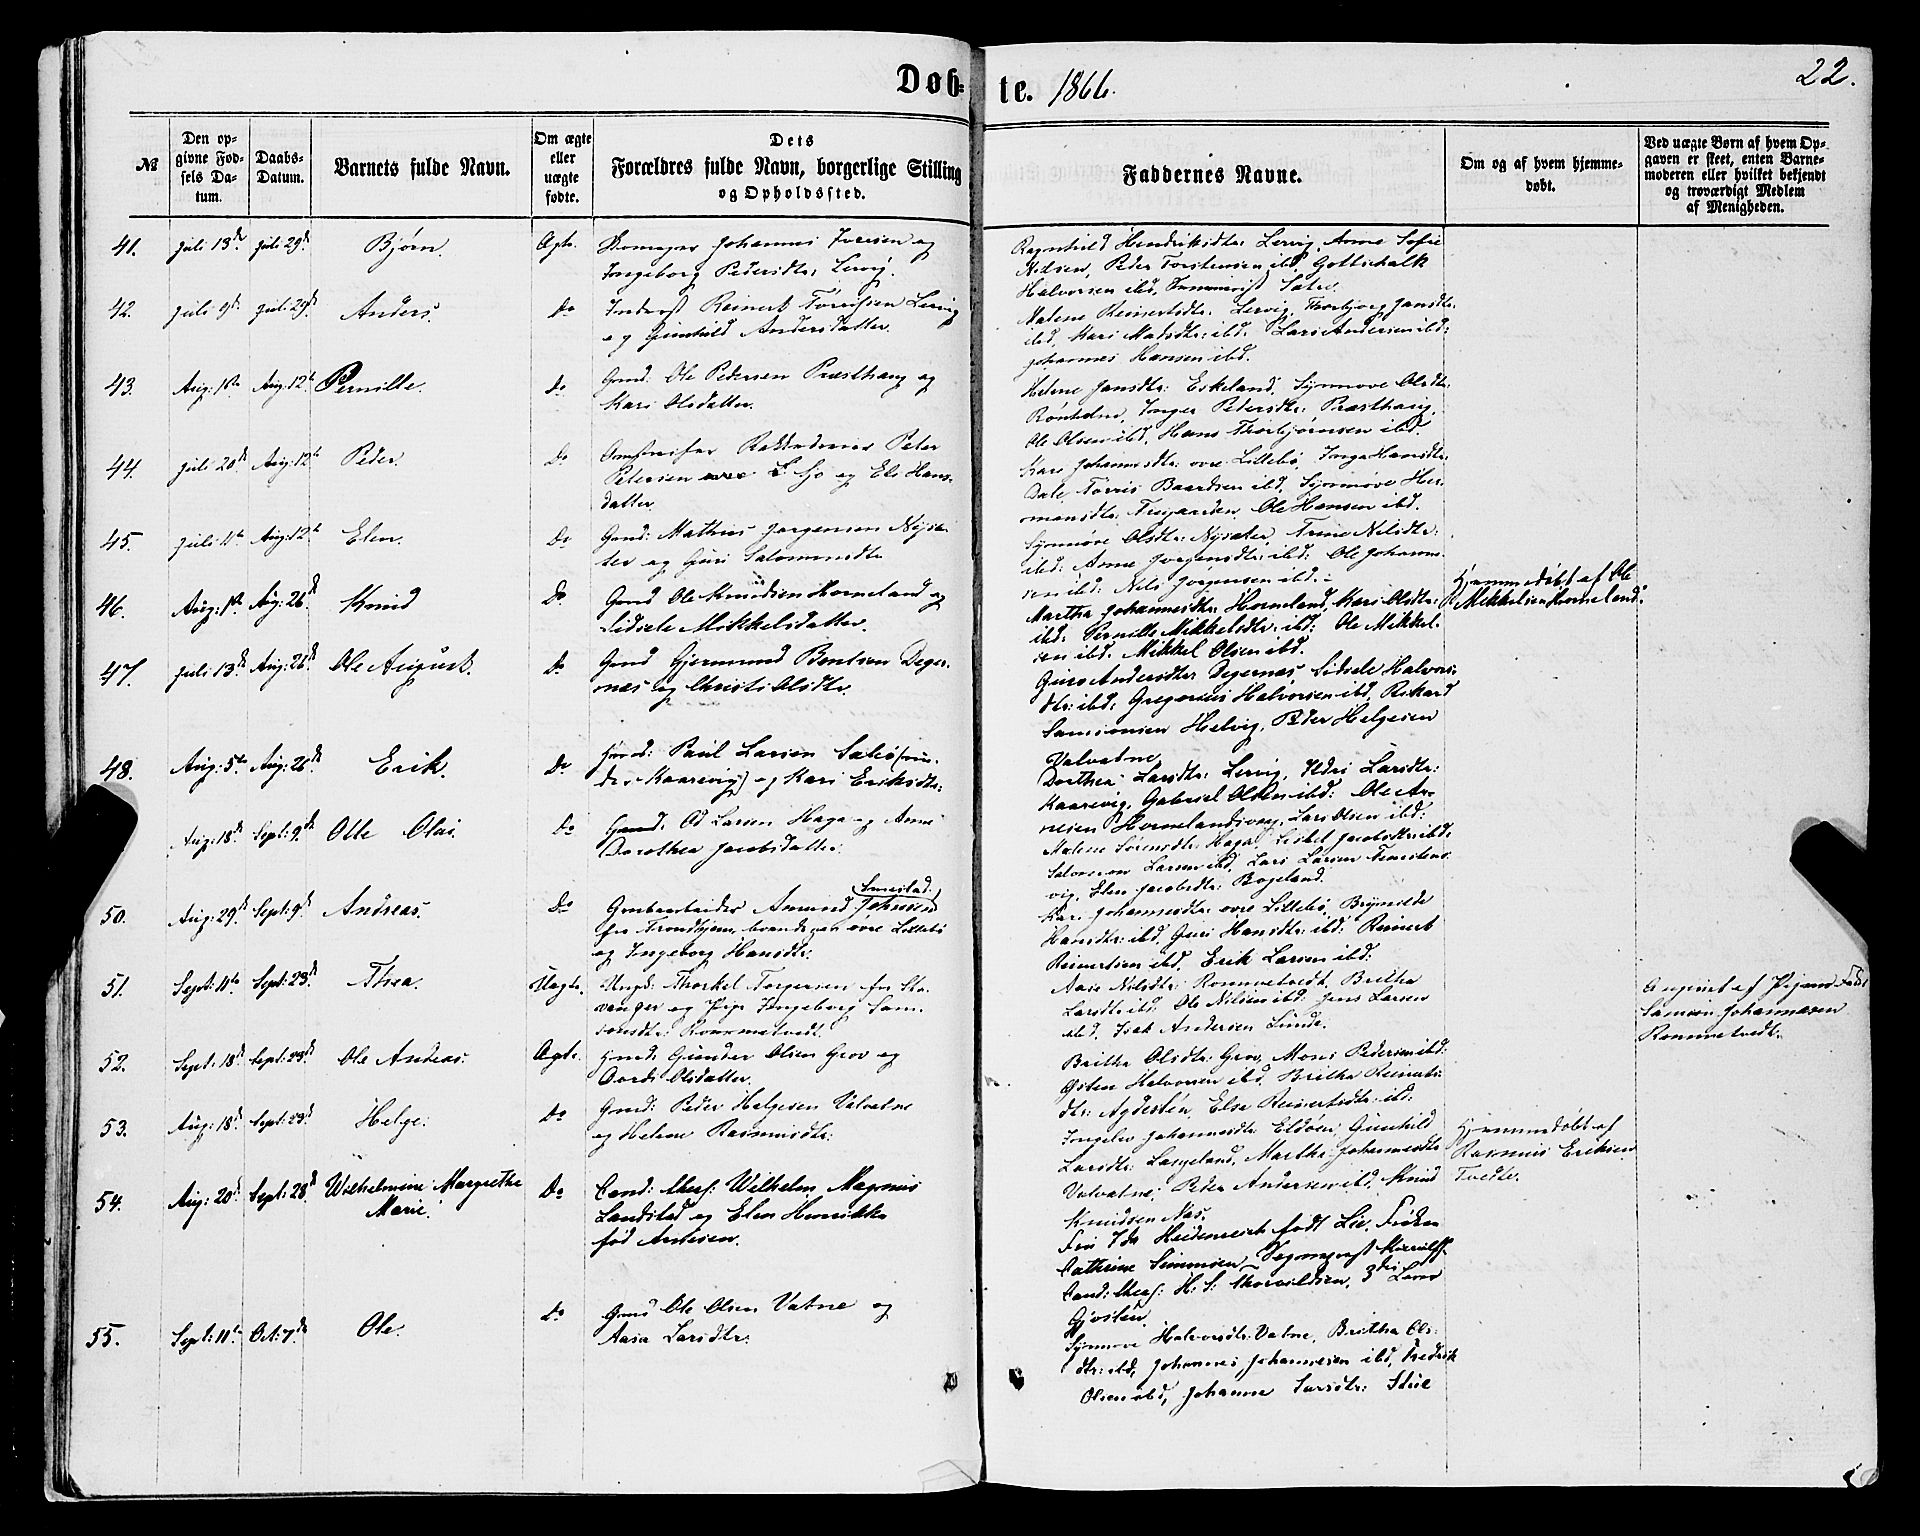 Døb-
te. 1866.
22.
№
Den op-
givne Fød-
sels Da-
tum.
Daabs-
Datum.
Barnets fulde Navn.
Om ægte
eller
uægte
fødte.
Dets
Forældres fulde Navn, borgerlige Stilling
og Opholdssted.
Faddernes Navne.
Om og af hvem hjemme-
døbt.
Ved uægte Børn af hvem Op-
gaven er skeet, enten Barne-
moderen eller hvilket bekjendt
og troværdigt Medlem
af Menigheden.
41. Juli 13de Juli 29de Bjørn. Ægte. Skomager Johannes Iversen og
Ingeborg Pedersdtr: Lervig.
Ragnhild Hendriksdtr: Lervig, Anne Sofie
Nilsen, Peder Torstensen ibd, Gottschalk
Halvorsen ibd, Sætre.
42. Juli 9de Juli 29de Anders. Do Reinert Tørrissen Lervig
og Gunhild Andersdatter.
Malene Reinertsdtr: Lervig, Thorbjørg Jansdtr:
ibd, Kari Matsdtr: ibd. Lars Andersen ibd:
Johannes Hansen ibd.
43. Aug: 1ste Aug: 12te Pernille. Do Gmd: Ole Pedersen Præsthaug og
Kari Olsdatter.
Helene Jansdtr: Eskeland, Synnøve Olsdtr:
Inger Petersdtr: Præsthaug,
Ole Olsen ibd, Hans Thorbjørnsen ibd.
44. Juli 20de Aug: 12te Peder. Do Peter
Petersen øvre L. bø og Eli Hans-
datter.
Kari Johannesdtr: øvre Lillebø, Inga Hansdtr:
Dale Tørris Baardsen ibd, Synnøve Her-
mansdtr: Ole Hansen ibd.
45. Juli 11te Aug: 12te Elen. Do Gmd: Mathias Jørgensen Nysæ-
ter og Guri Salomonsdtr
Synnøve Olsdtr: Nysæter, Trine Nilsdtr:
ibd: Anne Jørgensdtr: ibd: Ole Johanne-
sen ibd: Nils Jørgensen ibd.:
46. Aug: 1ste Aug: 26de Knud Do Gmd Ole Knudsen Horneland og
Sidsele Mikkelsdatter.
Martha Johannesdtr: Horneland, Kari Olsdtr:
ibd: Pernille Mikkelsdtr: ibd: Ole Mikkel-
sen ibd. Mikkel Olsen ibd.
Hjemmedøbt af Ole
Mikkelsen Horneland.
47. Juli 13de Aug: 26de Ole August. Do Gmd Gjermund Bentsen Deger-
nes og Christi Olsdtr.
Guro Andersdtr Degernes, Sidsele Halvors-
dtr: ibd: Gregorius Halvorsen ibd, Rikard
Samsonsen Hielvig, Peder Helgesen
Valvatne.
48. Aug: 5te Aug: 26de Erik. Do Gmd: Paul Larsen
Kaarevig) og Kari Eriksdtr:
Dorthea Larsdtr: Lervig, Larsdtr:
Kaarevig, Gabriel Olsen ibd: Ole Ar-
nesen Hornelandsvaag, Lars Olsen ibd:
Aug: 18de Sept: 9de Otte Olai. Do Gmd: Od Larsen Haga og Anne
Dorothea Jacobsdatter.
Malene Sørensdtr: Haga, Lisbet Jacobsdtr: ibd.
Salomon Larsen ibd, Lars Larsen
vig, Elen Jacobsdtr: Bogeland.
50. Aug: 29de Sept: 9de Andreas. Do Grubearbeider Amund Johnsen
fra Trondhjem, øvre Lillebø
og Ingeborg Hansdtr.
Kari Johannesdtr: øvre Lillebø, Brynilde
Hansdtr: ibd, Guri Hansdtr: ibd: Reinert
Reinertsen ibd, Erik Larsen ibd:
51. Sept: 11te Sept: 23de Thea. Uægte. Ungk: Thorkel Torgersen fra Sta-
vanger og Pige Ingeborg Sam-
sonsdtr: Rommetvedt.
Aase Nilsdtr: Rommetvedt, Britha
Larsdtr ibd, Ole Nilsen ibd, Jens Larsen
ibd, Isak Andersen Sunde.
Angivet af Pigens Fader
Samson Johannesen
Rommetvedt.
52. Sept: 18de Sept: 23de Ole Andreas. Ægte. Gmd: Gunder Olsen Grov og
Olsdatter.
Britha Olsdtr: Grov, Mons Pedersen ibd:
Østen Halvorsen ibd, Britha Reinerts-
dtr: Agdestén, Else Reinertsdtr: ibd:
53. Aug: 18de Sept: 23de Helge. Do Gmd: Peder Helgesen Valvatne
og Helene Rasmusdtr:
Johannesdtr: Eldøen, Gunhild
Larsdtr: Langeland, Martha Johannesdtr
Valvatne, Peder Andersen ibd, Knud
Knudsen Næs.
Hjemmedøbt af
Rasmus Eriksen
Tvedte.
54. Aug: 20de Sept: 28de Wilhelmine Margrethe
Marie. Do Cand: theol: Wilhelm Magnus
Landstad og Elen Henrikke
fød Arnesen.
Fru Ida Heidenreich født Lie, Frøken
Cathrine Simonsen,
Cand: theol: H. S: Thorvaldsen,
55. Sept: 11te Oct: 7de Ole. Do Gmd Ole Olsen Vatne og
Aasa Larsdtr.
Synnøve Halvorsdtr: Vatne, Britha Ols-
dtr: ibd, Johannes Johannesen ibd, Fredrik
Olsen ibd, Johanne Larsdtr: